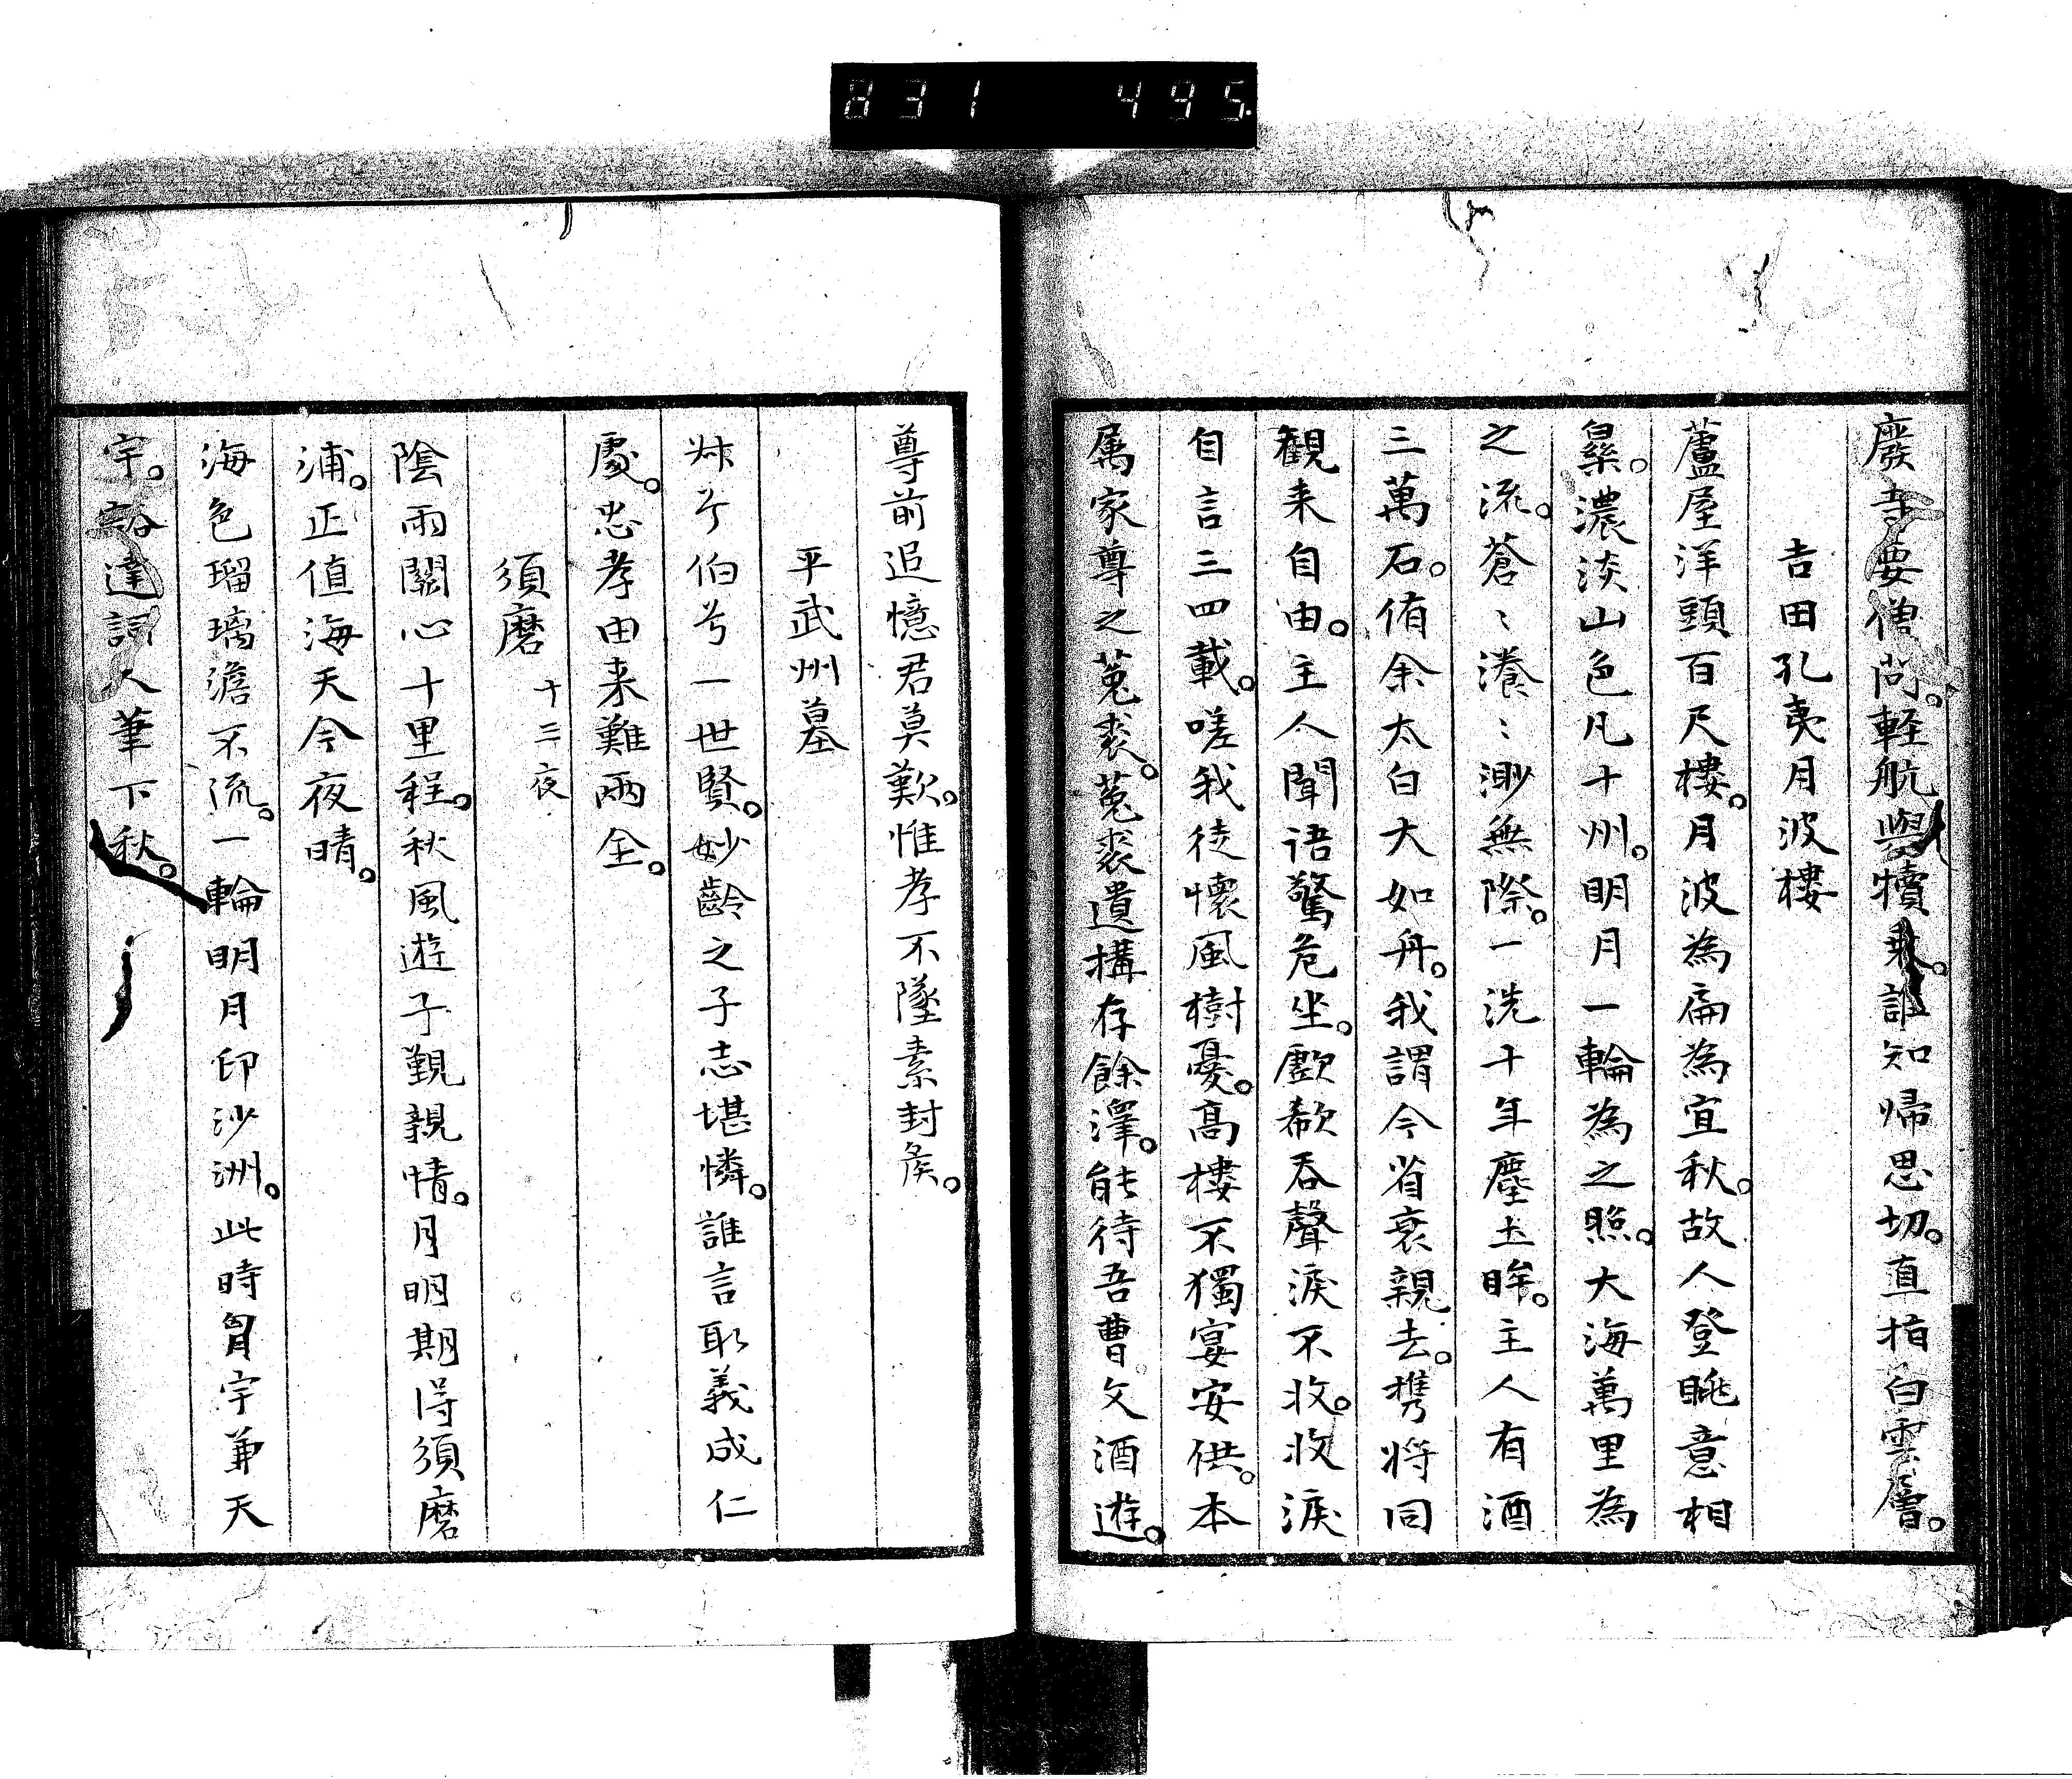 831 495
廢寺要僧尚。軽航與犢乗。誰知帰思切。直指白雲層。
吉田孔夷月波樓
蘆屋洋頭百尺樓。月波為扁為宜秋。故人登眺意相
㬎。濃淡山色凡十州。明月一輪為之照。大海萬里為
之流。蒼〻瀁〻渺無際。一洗十年塵土眸。主人有酒
三萬石。侑余太白大如舟。我謂今省衰親去。携将同
觀来自由。主人聞語驚危坐。歔欷吞聲淚不收。收淚
自言三四載。嗟我徒懷風樹憂。高樓不獨宴安供。本
属家尊之菟裘。菟裘遺構存餘澤。能待吾曹文酒遊。
尊前追憶君莫歎。惟孝不墜素封侯。
平武州墓
叔兮伯兮一世賢。妙齡之子志堪憐。誰言取義成仁
處。忠孝由来難兩全。
須磨 十三夜
陰雨關心十里程。秋風遊子覲親情。月明期得須磨
浦。正值海天今夜晴。
海色瑠璃澹不流。一輪明月印沙洲。此時胷宇兼天
宇。豁達詞人筆下秋。